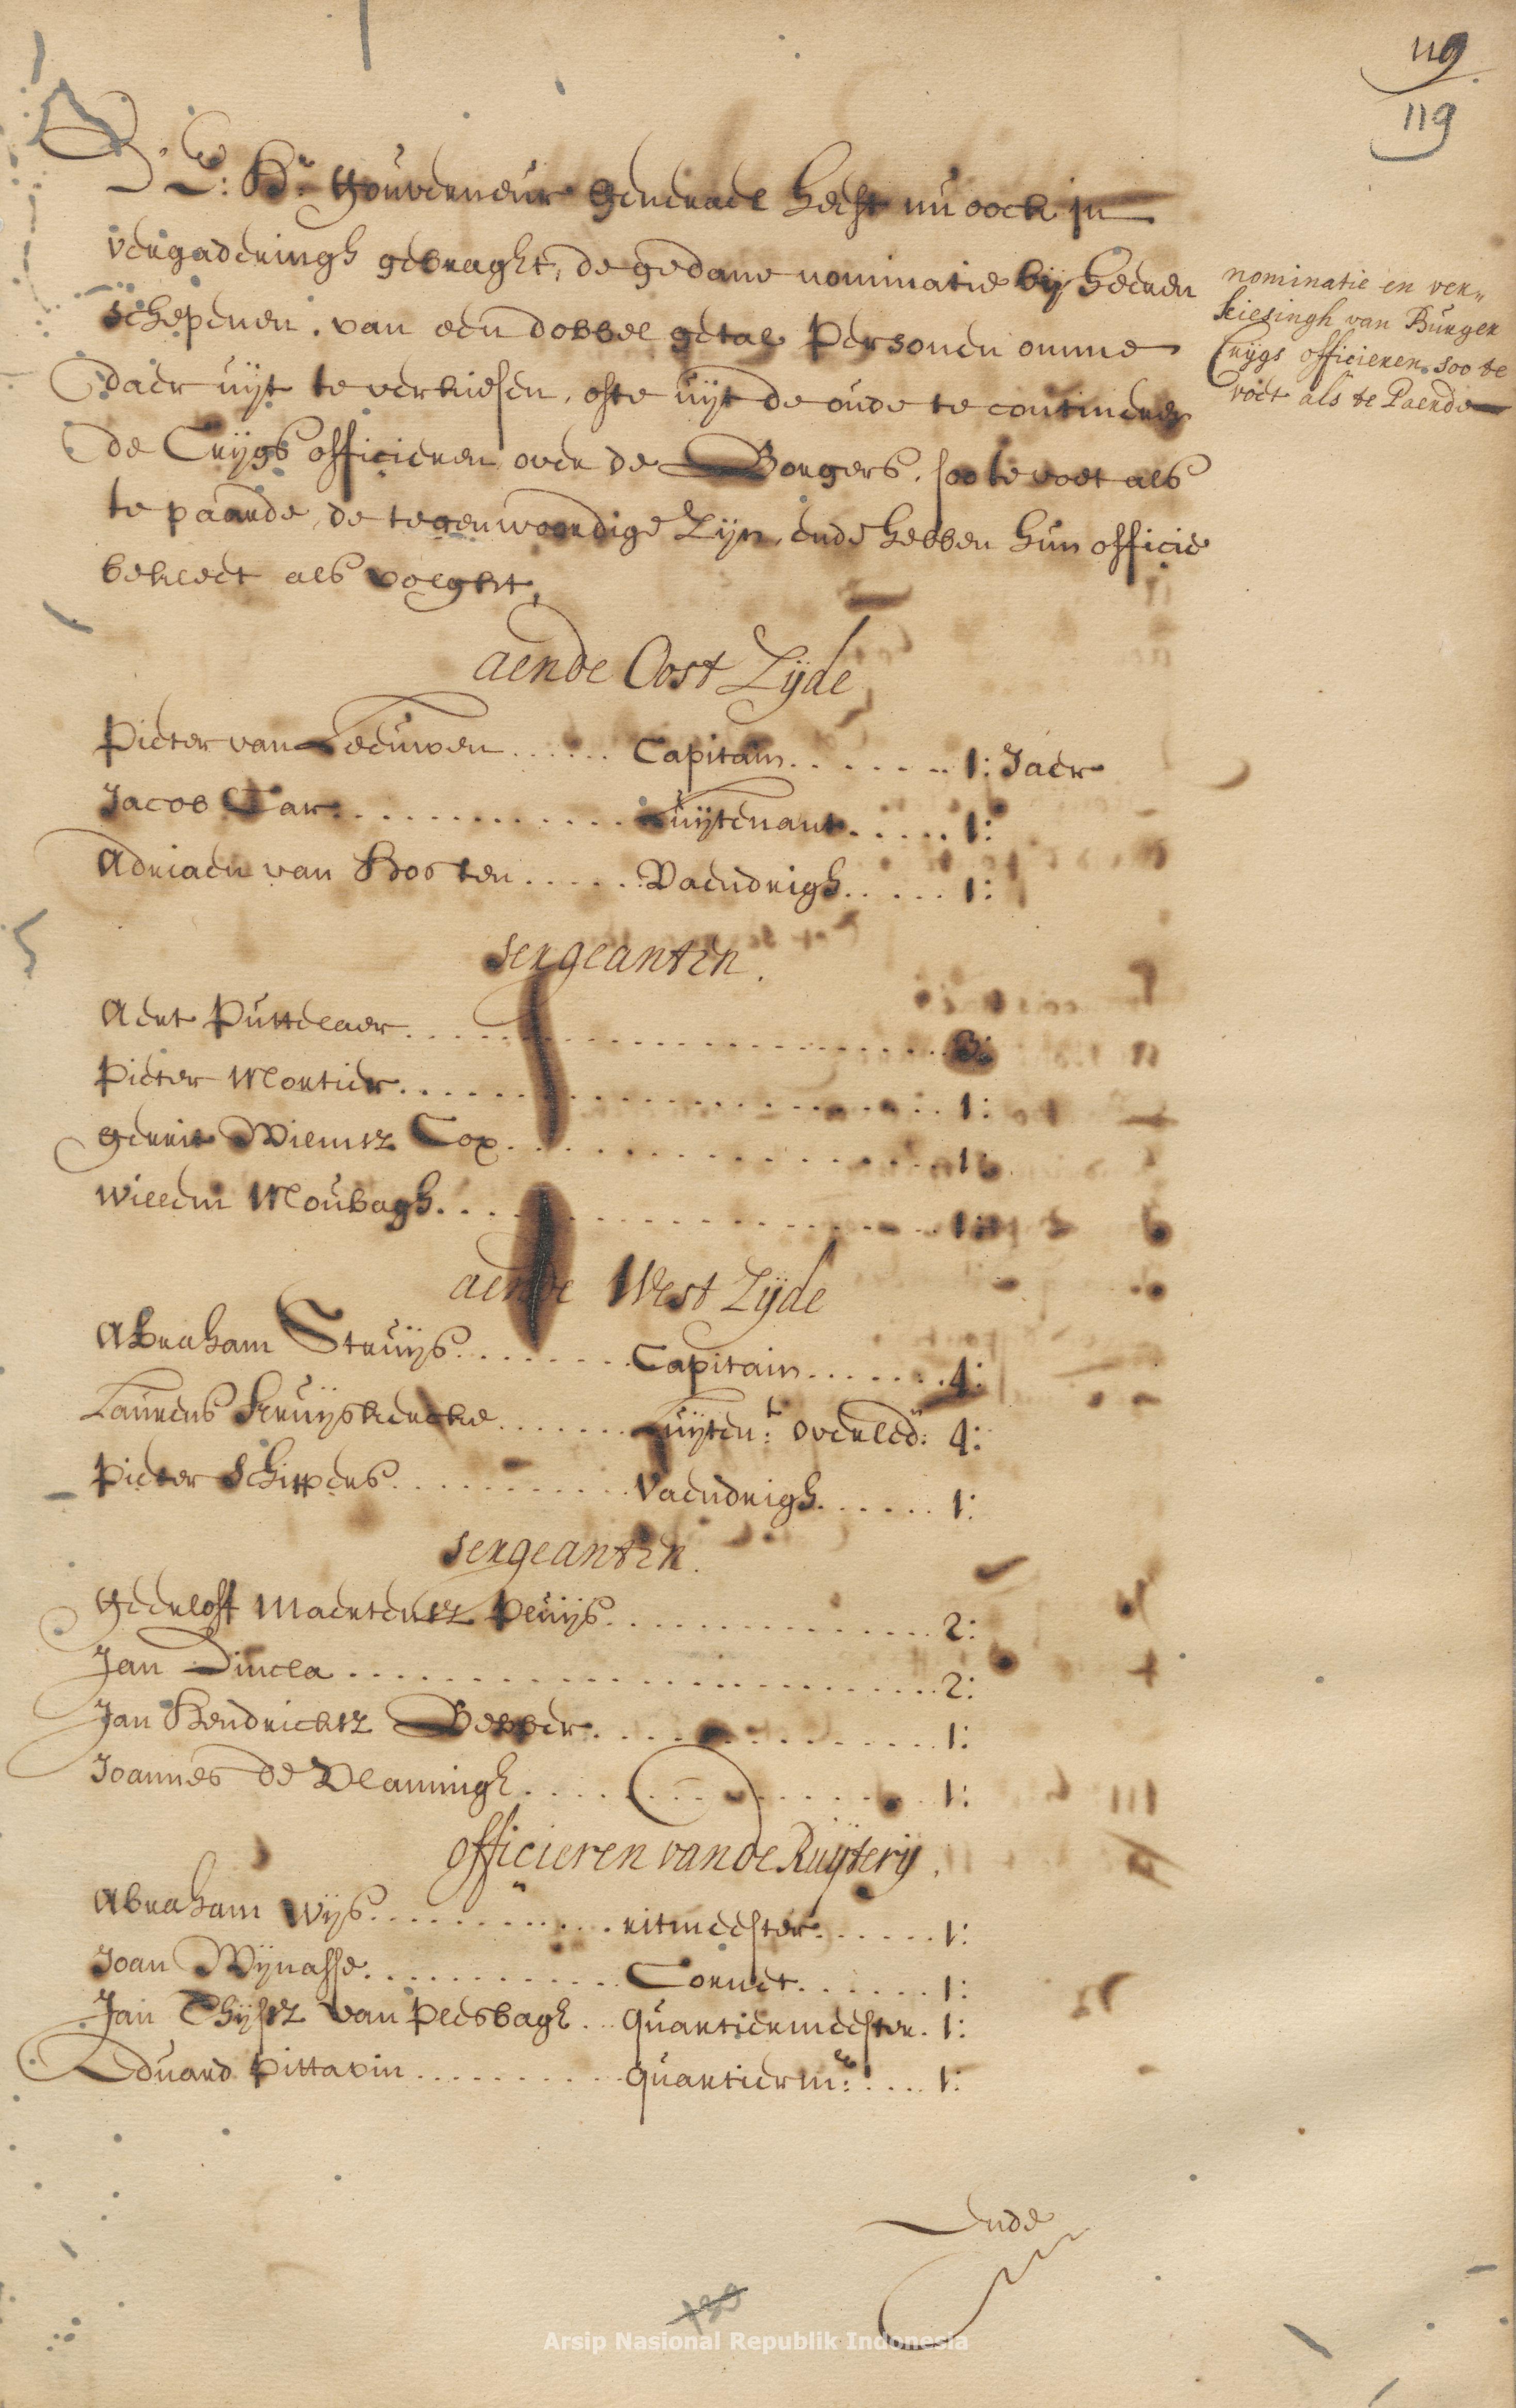 119
119
D'E: Hr. Gouverneur Generael heeft nu oock in
vergaderingh gebraght, de gedane nominatie bij heeren
schepenen, van een dobbel getal personen omme
daer uijt te verkiesen, ofte uijt de oude te continueren
de Crijgs officieren over de Borgers, soo te voet als
te paarde, de tegenwoordige zijn, ende hebben hun officie
bekleet als volght,
nominatie en ver„
kiesingh van Burger
Crijgs officieren soo te
voet als te Paerde
aende Oost Zijde
Pieter van Leeuwen ...... Capitain ....... 1: Jaer
Jacob Car ............ Luijtenant ..... 1:
Adriaen van Hooten ...... Vaendrigh ..... 1:
sergeanten.
Aert Puttelaer ....................
Pieter Mortier .................... 1:
gerrit Wilmsz Cox ................. 1:
Willem Moubagh .................... 1:
aende West Zijde
Abraham Struijs ........ Capitain ....... 4:
Laurens Kruijskercke ....... Luijten:t overled:n 4:
Pieter Schippers ........... Vaendrigh ...... 1:
sergeanten.
Geerloff Maertensz Pluijs ............... 2:
Jan Dincla ...................... 2:
Jan Hendricksz Bebber ............... 1:
Joannes de Vlamingh ................ 1:
officieren vande Ruijterij.
Abraham Wijs ............ ritmeester ...... 1:
Joan Wijnasse ............ Cornet ....... 1:
Jan Thijsz van Peesbagh ... quartiermeester. 1:
Eduard Pittavin .......... quartierm:er .... 1:
Ende
Arsip Nasional Republik Indonesia